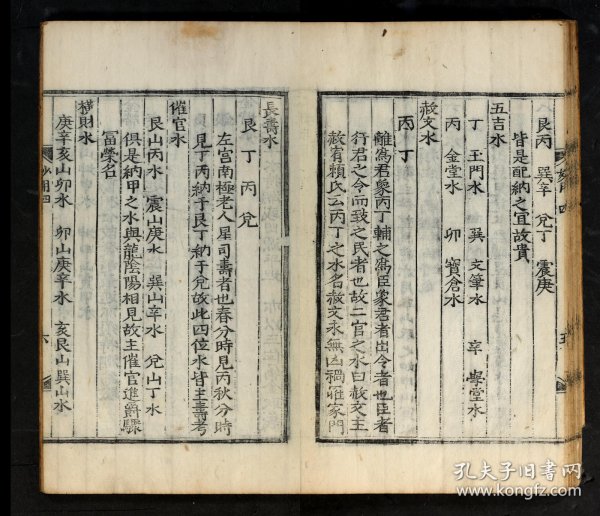 艮丙　巽辛　兌丁　震庚
皆是配納之宜故貴
五吉水
丁　玉門水　巽　文筆水　辛　學堂水
丙　金堂水　卯　寶倉水
赦文水
丙　丁
離爲君象丙丁輔之爲臣象君者出令者也臣者
行君之令而致之民者也故二官之水曰赦文主
赦宥賴氏云丙丁之水名赦文永無凶禍罹家門
長壽水
艮　丁　丙　兌
左宮南極老人星司壽者也春分時見丙秋分時
見丁丙納于艮丁納于兌故此四位水皆主壽考
催官水
艮山丙水　震山庚水　巽山辛水　兌山丁水
俱是納甲之水與龍陰陽相見故主催官進爵驟
富榮名
橫財水
庚辛亥山卯水　卯山庚辛水　亥艮山巽山水
六
孔夫子旧书网
www.kongfz.com